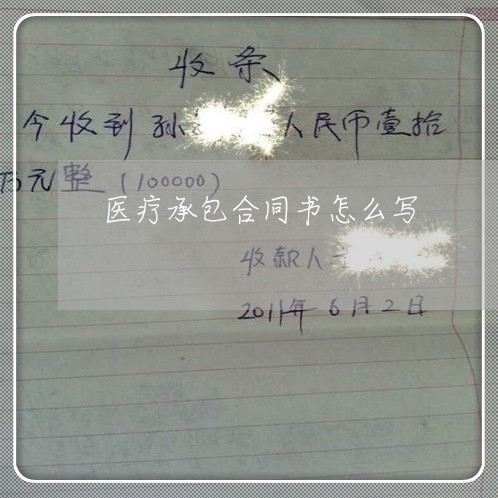 收条
今收到孙 人民币壹拾
万元整(100000)
医疗承包合同书怎么写
收款人
2011年6月2日